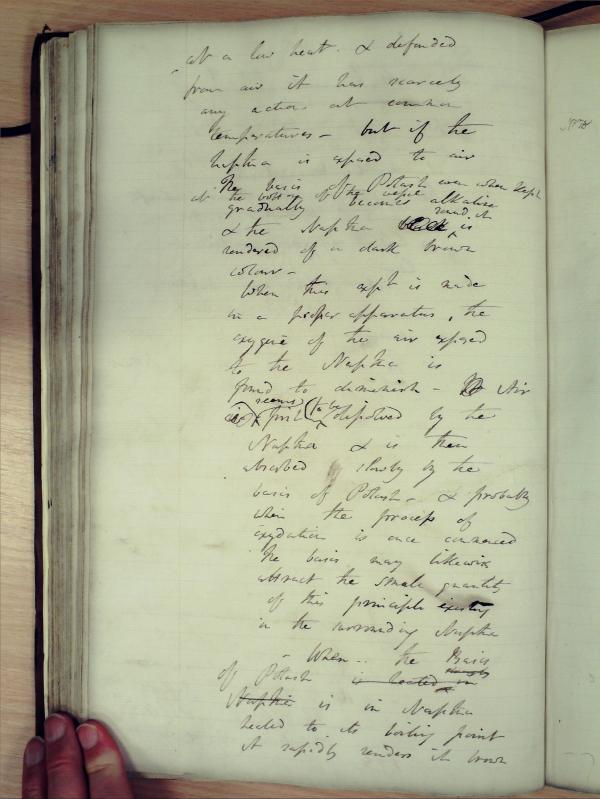 at a low heat. & defended
from air it has scarcely
any action at common
temperatures – but if the
Naptha is exposed to air
The basis of Potash even when kept
at the bottom of the vessel
gradually becomes alkaline
& the Naptha round it is
rendered of a dark brown
colour –
When this expt is made
in a proper apparatus, the
oxygene of the air exposed
to the Naptha is
found to diminish – Air
seems first to be dissolved by the
Naptha & is then
absorbed slowly by the
basis of Potash – & probably
when the process of
oxydation is once commenced
The basis may likewise
abstract the small quantity
of this principle existing
in the surrounding Naptha
– When – the Basis
of Potash is heated in
Naptha is in Naptha
heated to its boiling point
it rapidly renders it brown